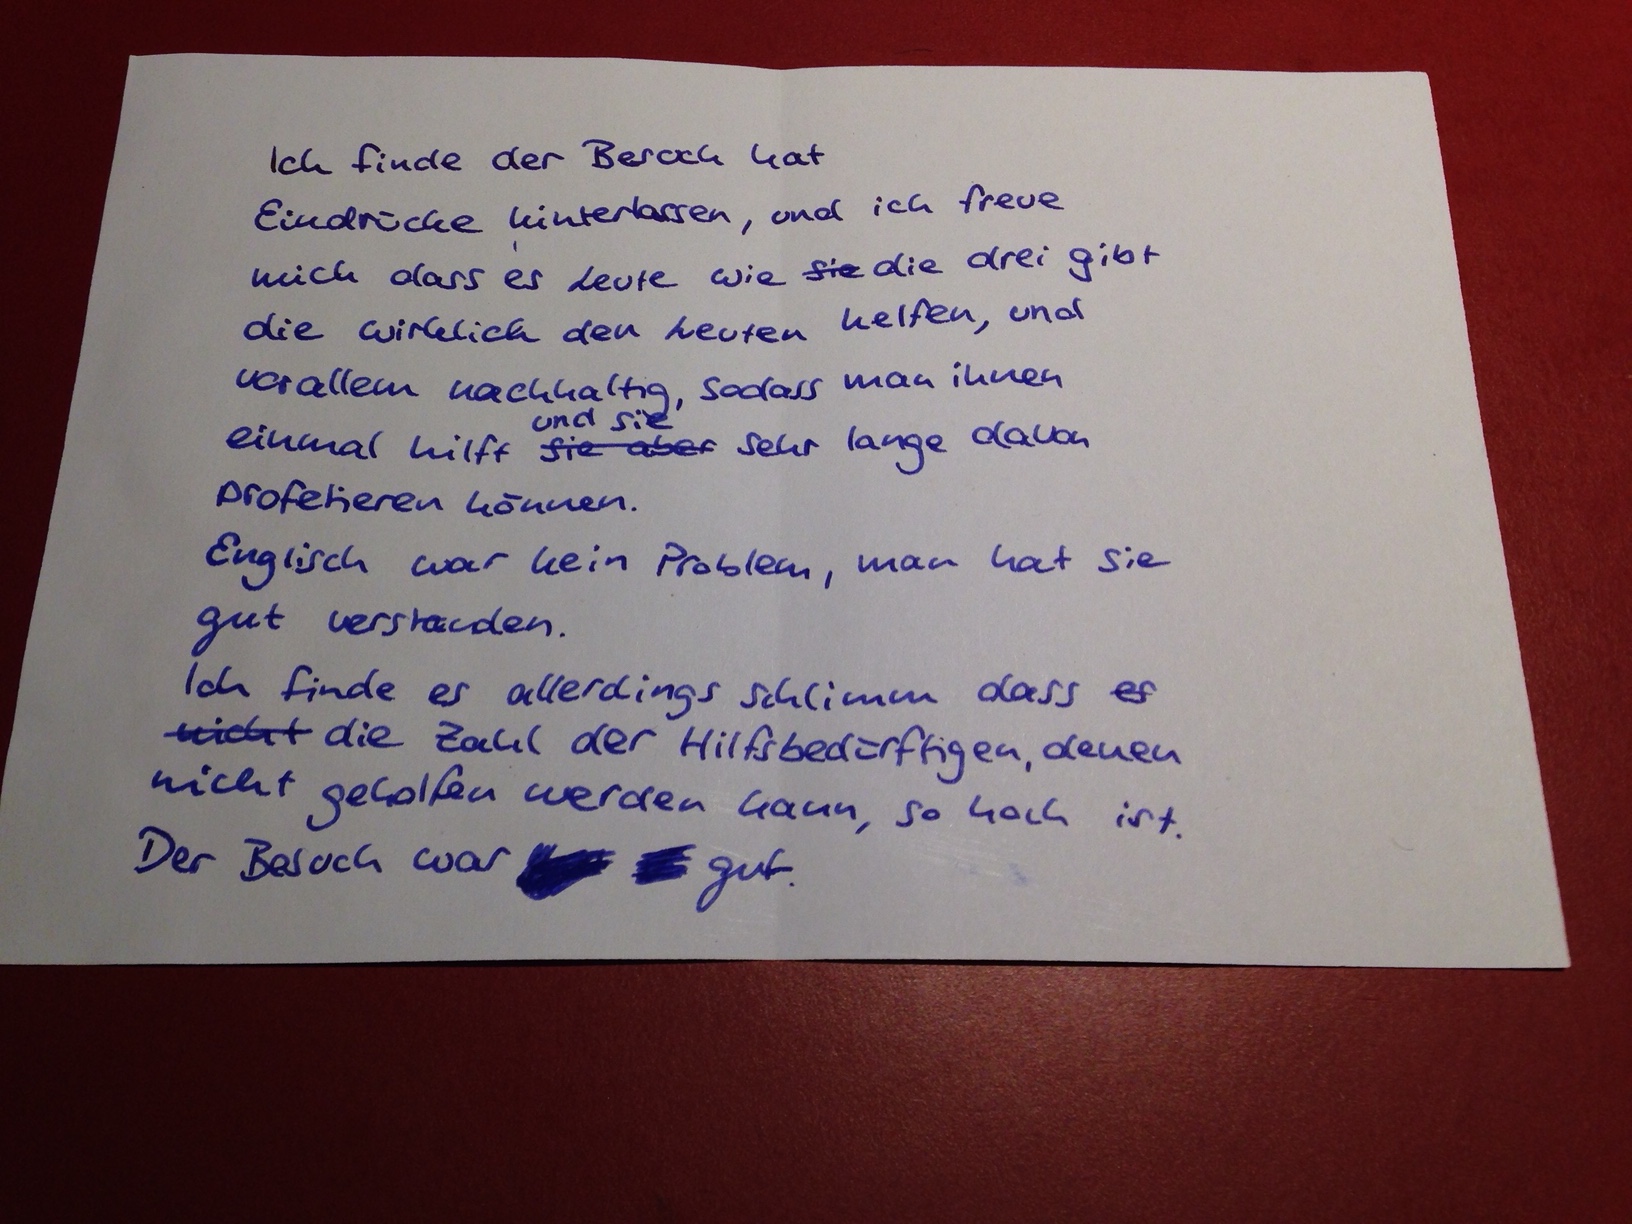 Ich finde der Besuch hat
Eindrücke hinterlassen, und ich freue
mich dass es Leute wie sie die drei gibt
die wirklich den Leuten helfen, und
vorallem nachhaltig, sodass man ihnen
und sie
einmal hilft sie aber sehr lange davon
profetieren können.
Englisch war kein Problem, man hat sie
gut verstanden.
Ich finde es allerdings schlimm dass es
nicht die Zahl der Hilfsbedürftigen, denen
nicht geholfen werden kann, so hoch ist.
Der Besuch war gut.